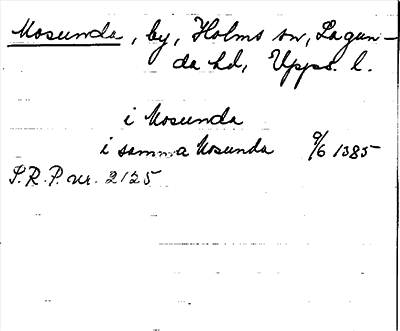 Mosunda, by, Holms sn, Lagun-
da hd, Upps. l.
i Mosunda
i samma Mosunda 9/6 1385
S.R.P. nr. 2125